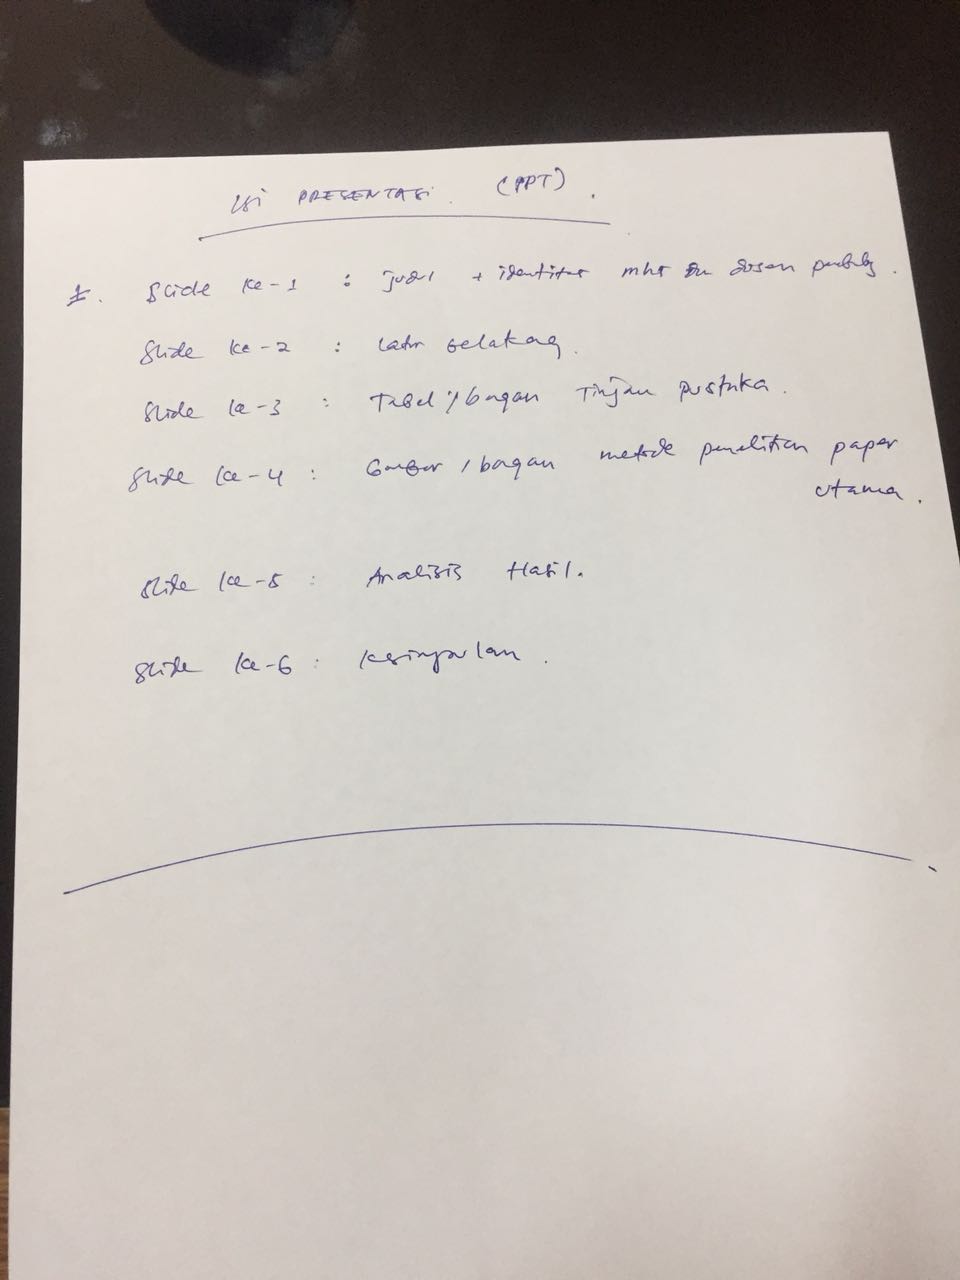 Isi PRESENTASI. (PPT).
1. Slide ke-1 : judul + identitas mhs dn dosen
Slide ke-2 : latar belakang.
Slide ke-3 : Tabel / bagan Tinjaun pustaka.
Slide ke-4 : Gambar / bagan metode penelitian paper
utama.
Slide ke-5 : Analisis Hasil.
Slide ke-6 : kesimpulan.